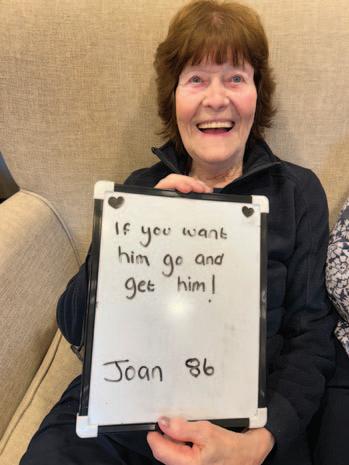 If you want
him go and
get him!
Joan 86